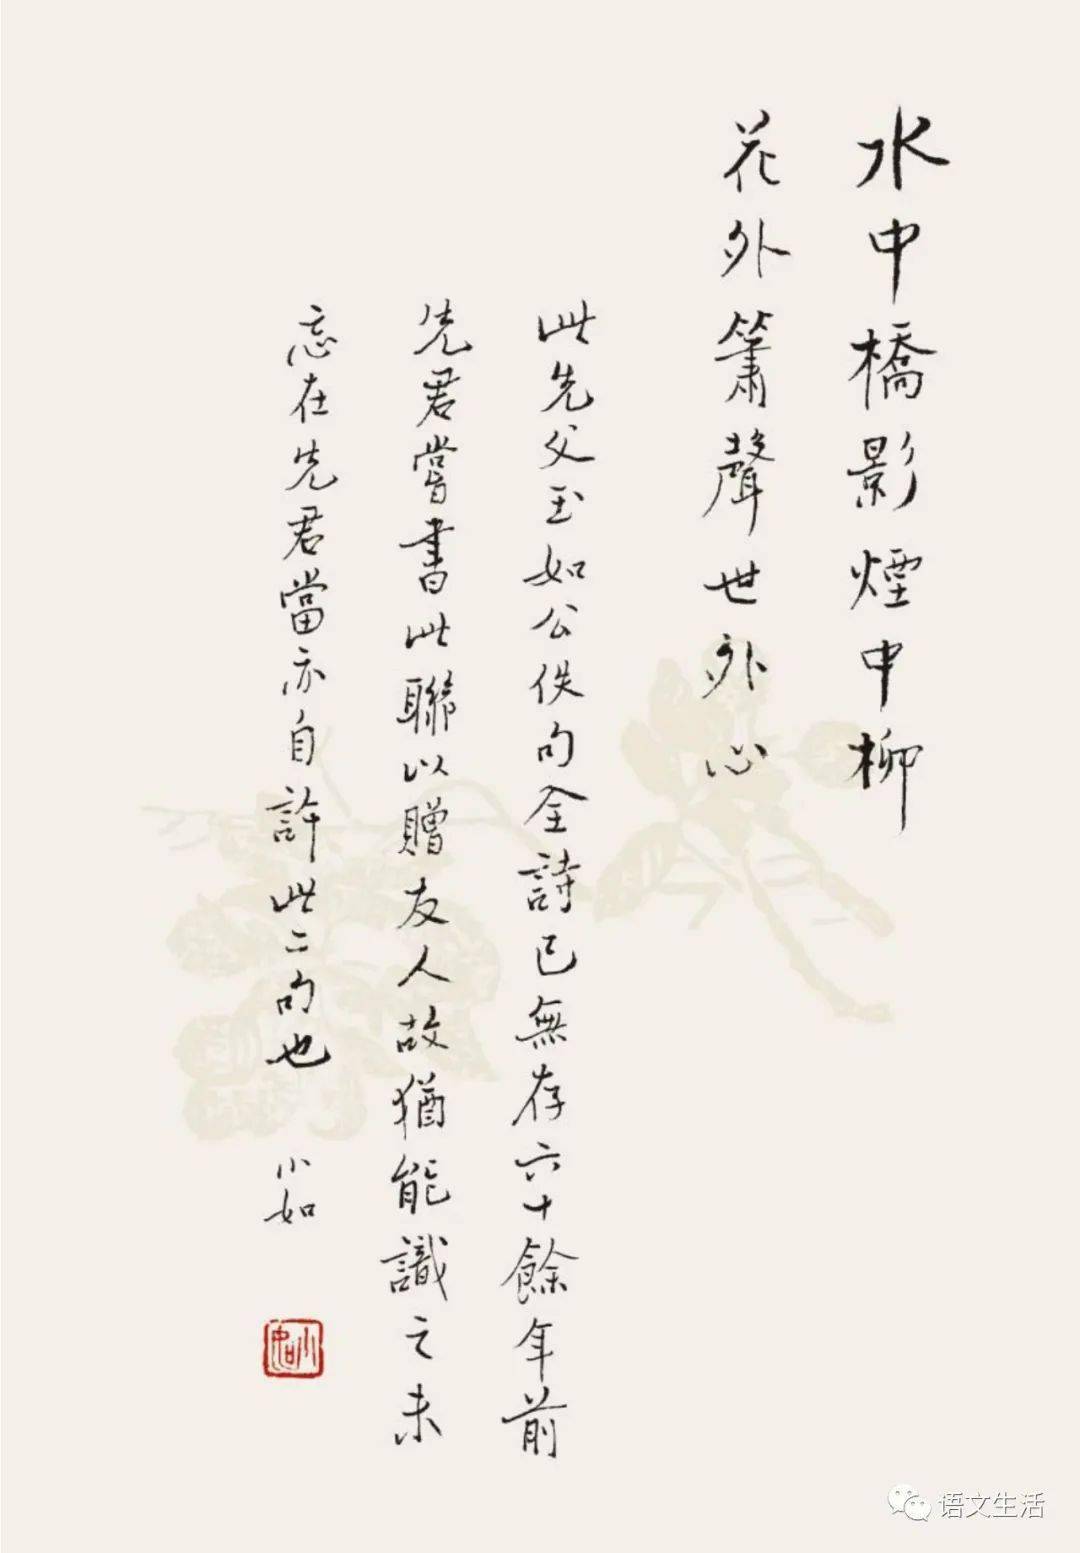 水中橋影煙中柳
花外簫聲世外心
此先父玉如公佚句全詩已無存六十餘年前
先君嘗書此聯以贈友人故猶能識之未
忘在先君當亦自許此二句也
小如
语文生活